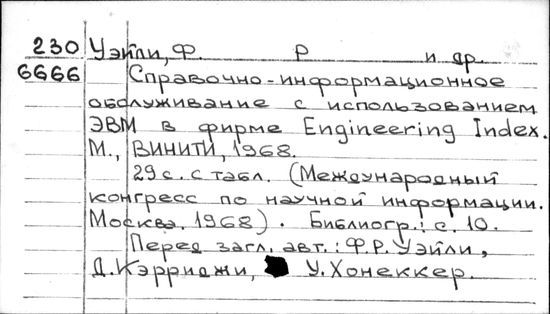 230 Уэйли, Ф. Р и др.
6666 Справочно-информационное
обслуживание с использованием
ЭВМ в фирме Engineering Index.
М., ВИНИТИ, 1968.
29 с. с табл. (Международный
конгресс по научной информации.
Москва. 1968). Библиогр.: с. 10.
Перед загл. авт.: Ф.Р. Уэйли,
Д. Кэрриджи, У. Хонеккер.